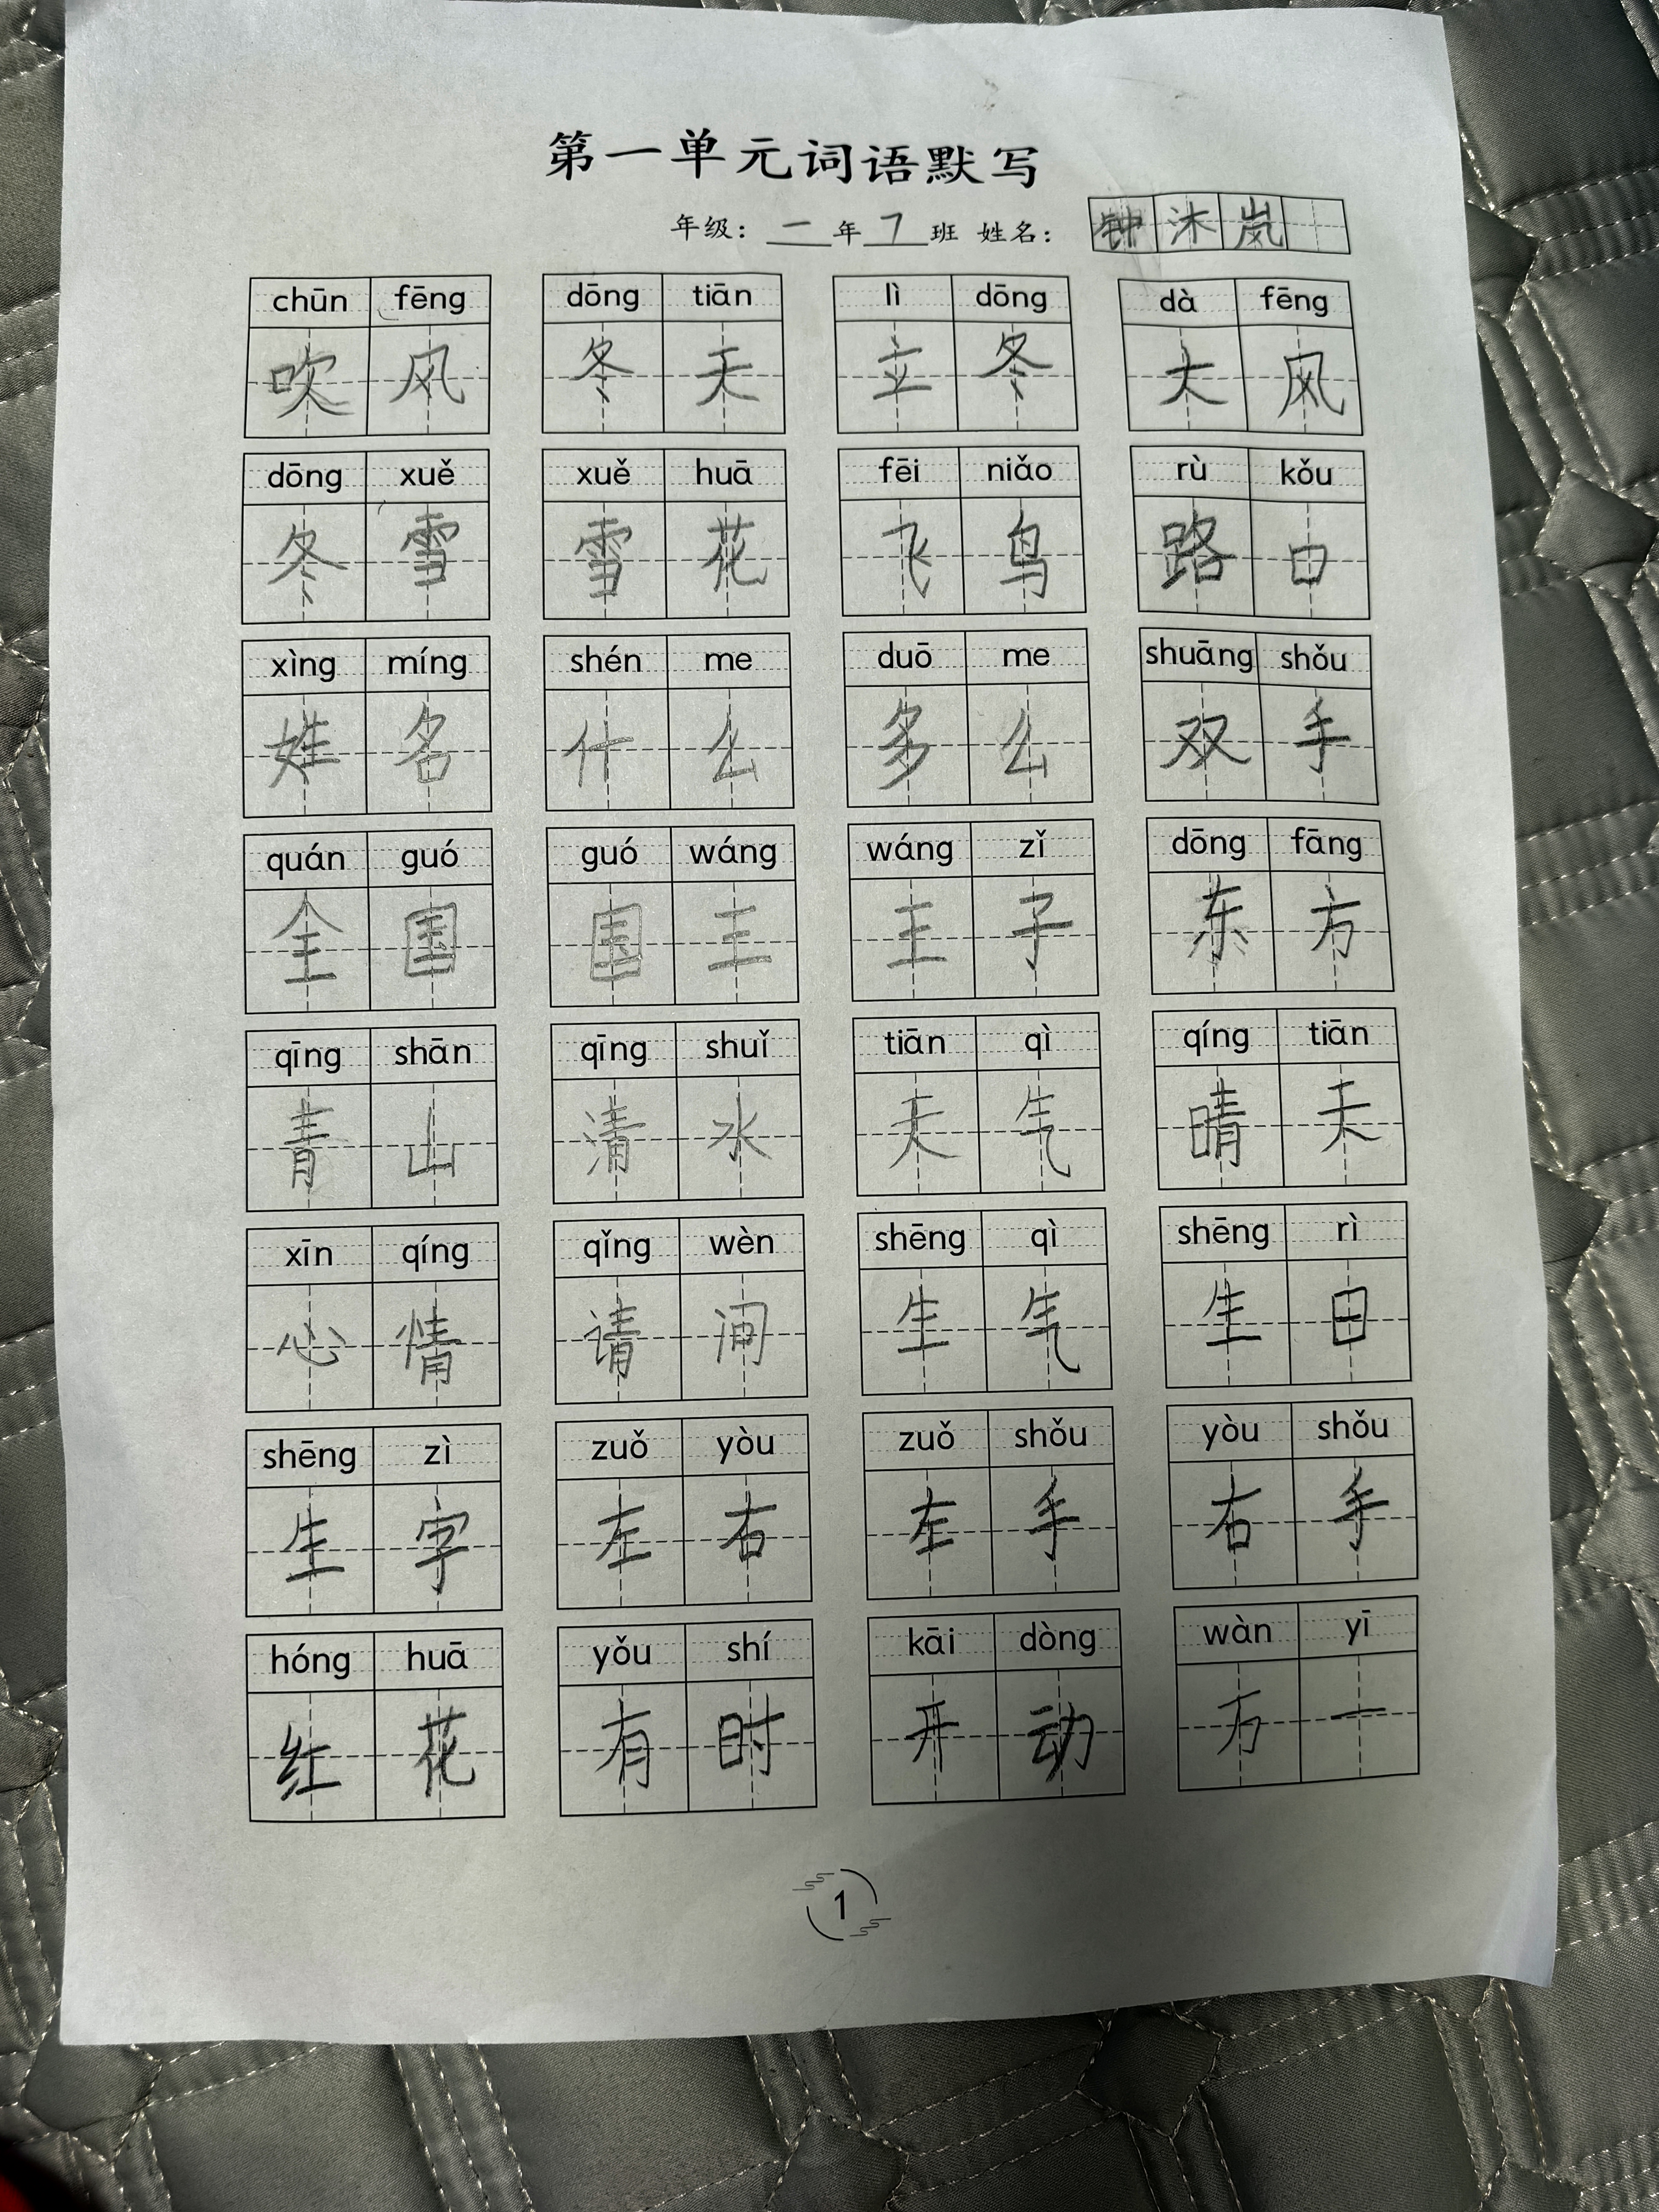 第一单元词语默写
年级：一年7班 姓名：钟沐岚
chūn fēng dōng tiān lì dōng dà fēng
吹风 冬天 立冬 大风
dōng xuě xuě huā fēi niǎo rù kǒu
冬雪 雪花 飞鸟 路口
xìng míng shén me duō me shuāng shǒu
姓名 什么 多么 双手
quán guó guó wáng wáng zǐ dōng fāng
全国 国王 王子 东方
qīng shān qīng shuǐ tiān qì qíng tiān
青山 清水 天气 晴天
xīn qíng qǐng wèn shēng qì shēng rì
心情 请问 生气 生日
shēng zì zuǒ yòu zuǒ shǒu yòu shǒu
生字 左右 左手 右手
hóng huā yǒu shí kāi dòng wàn yī
红花 有时 开动 万一
1